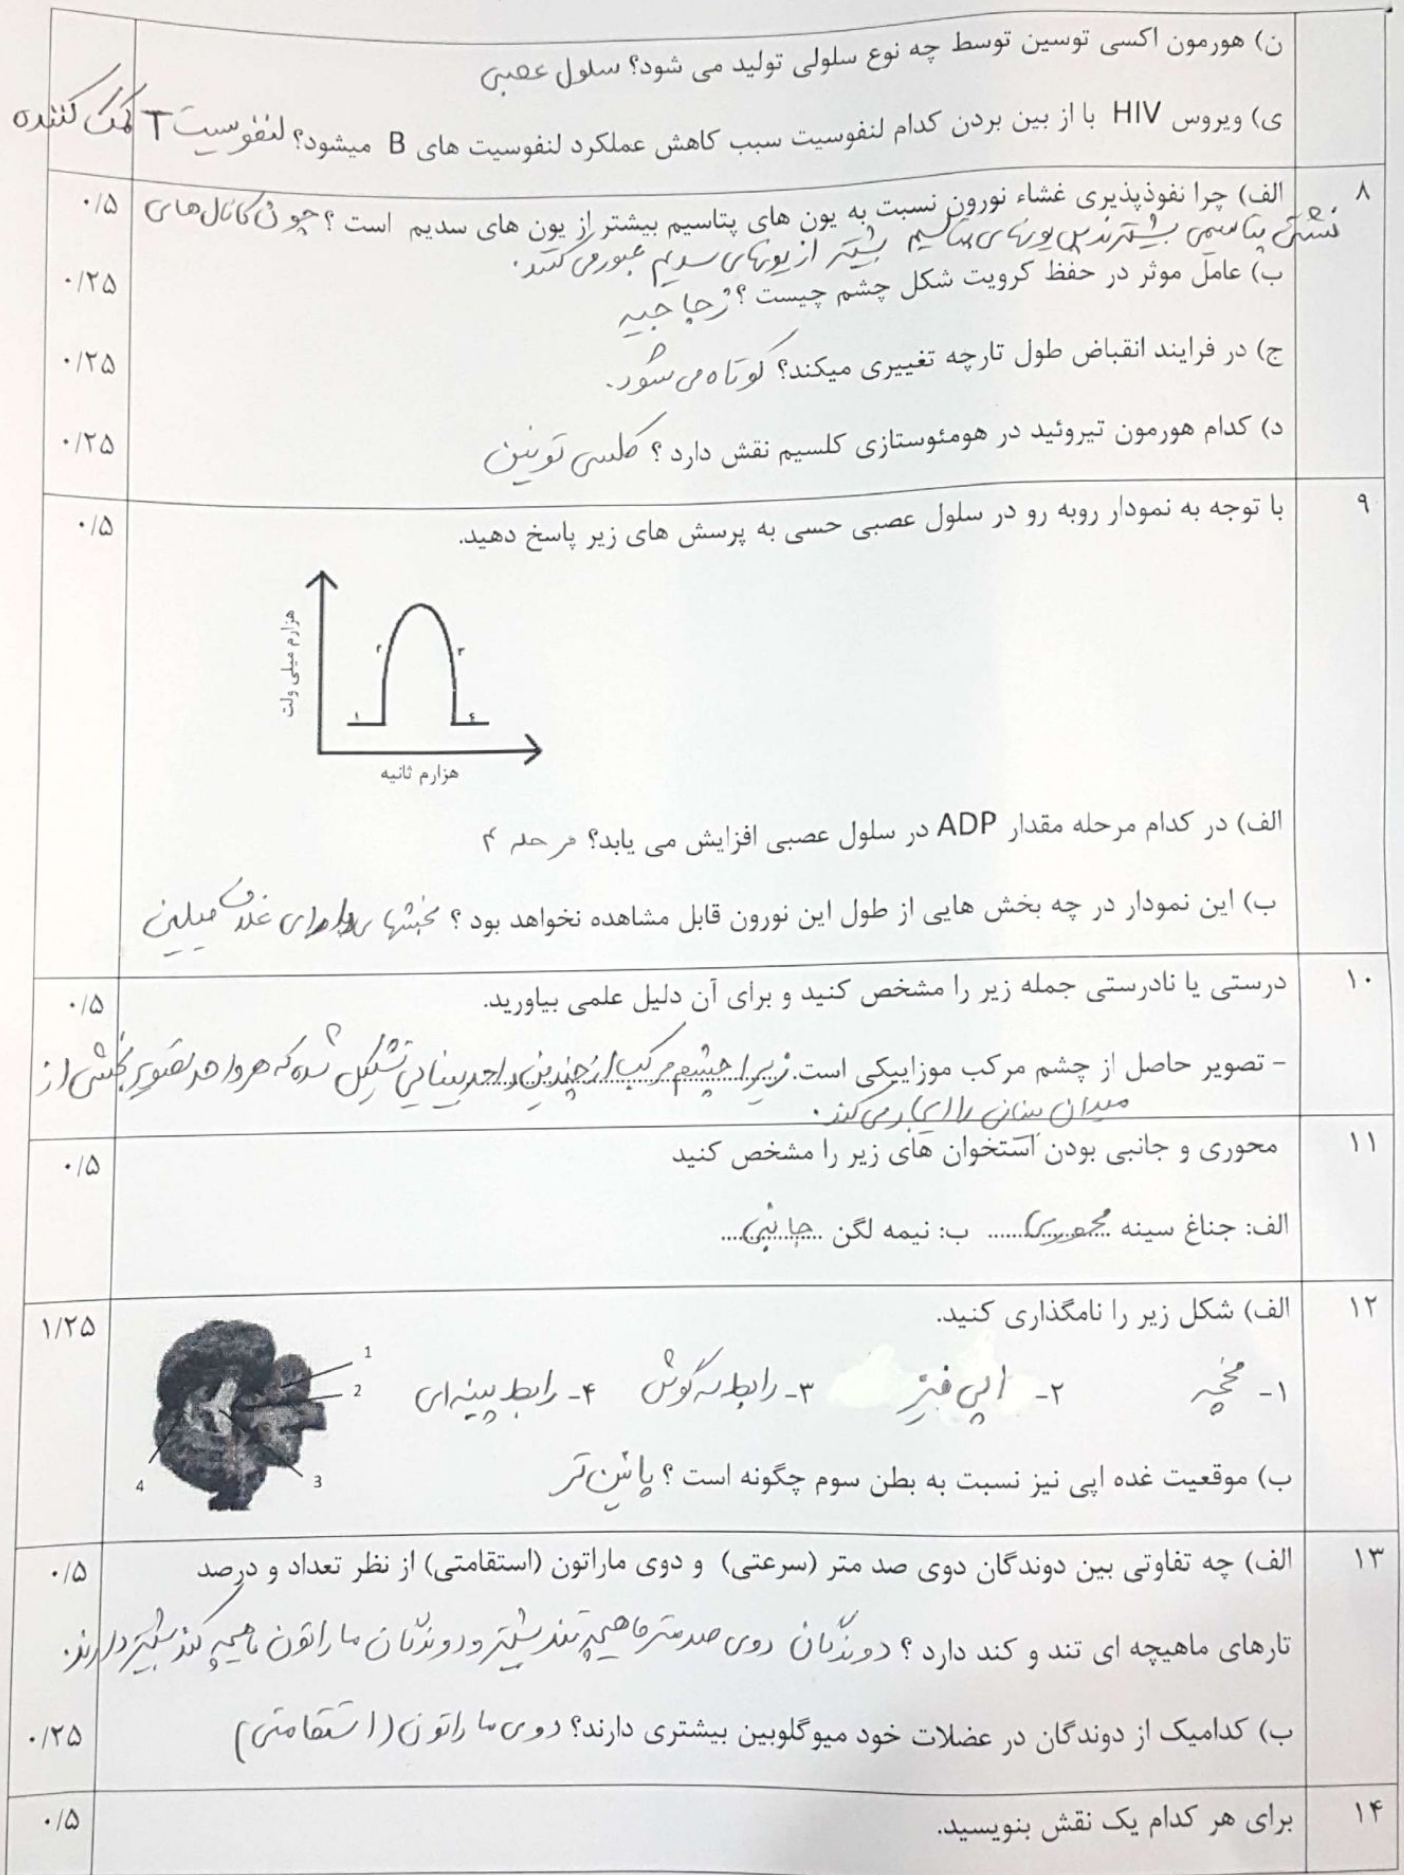 ن) هورمون اکسی توسین توسط چه نوع سلولی تولید می شود؟ سلول عصبی
ی) ویروس HIV با از بین بردن کدام لنفوسیت سبب کاهش عملکرد لنفوسیت های B میشود؟ لنفوسیت T کمک کننده
۸
الف) چرا نفوذپذیری غشاء نورون نسبت به یون های پتاسیم بیشتر از یون های سدیم است ؟ چون کانال های
۰/۵
نشتی پتاسیمی بیشترند پس یونهای پتاسیم بیشتر از یونهای سدیم عبور می کنند.
ب) عامل موثر در حفظ کرویت شکل چشم چیست ؟ زجاجیه
۰/۲۵
ج) در فرایند انقباض طول تارچه تغییری میکند؟ کوتاه می شود.
۰/۲۵
د) کدام هورمون تیروئید در هومئوستازی کلسیم نقش دارد ؟ کلسی تونین
۰/۲۵
۹
با توجه به نمودار روبه رو در سلول عصبی حسی به پرسش های زیر پاسخ دهید.
۰/۵
هزارم میلی ولت
۱
۲
۳
٤
هزارم ثانیه
الف) در کدام مرحله مقدار ADP در سلول عصبی افزایش می یابد؟ مرحله ۴
ب) این نمودار در چه بخش هایی از طول این نورون قابل مشاهده نخواهد بود ؟ بخشهای دارای غلاف میلین
۱۰
درستی یا نادرستی جمله زیر را مشخص کنید و برای آن دلیل علمی بیاورید.
۰/۵
- تصویر حاصل از چشم مرکب موزاییکی است. زیرا چشم مرکب از چندین واحد بینایی تشکیل شده که هر واحد تصویر بخشی از
میدان بینایی را ایجاد می کند.
۱۱
محوری و جانبی بودن استخوان های زیر را مشخص کنید
۰/۵
الف: جناغ سینه محوری ب: نیمه لگن جانبی
۱۲
الف) شکل زیر را نامگذاری کنید.
۱/۲۵
۱- مخچه ۲- اپی فیز ۳- رابط سه گوش ۴- رابط پینه ای
1
2
3
4
ب) موقعیت غده اپی نیز نسبت به بطن سوم چگونه است ؟ پائین تر
۱۳
الف) چه تفاوتی بین دوندگان دوی صد متر (سرعتی) و دوی ماراتون (استقامتی) از نظر تعداد و درصد
۰/۵
تارهای ماهیچه ای تند و کند دارد ؟ دوندگان دوی صدمتر ماهیچه تند بیشتر و دوندگان ماراتون ماهیچه کند بیشتر دارند.
ب) کدامیک از دوندگان در عضلات خود میوگلوبین بیشتری دارند؟ دوی ماراتون (استقامتی)
۰/۲۵
۱۴
برای هر کدام یک نقش بنویسید.
۰/۵